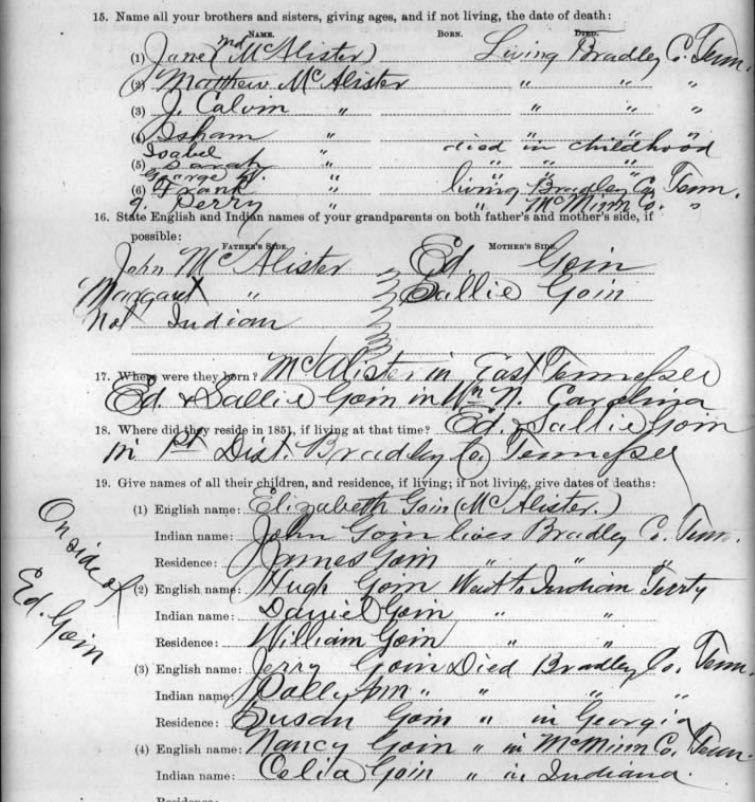 15. Name all your brothers and sisters, giving ages, and if not living, the date of death:
NAME. BORN. DIED.
(1) Jane (md McAlister) Living Bradley Co. Tenn.
(2) Matthew McAlister " " "
(3) J. Calvin " " " "
(4) Isham " died in childhood
Isabel " " " "
(5) Sarah " " " "
George W. "
(6) Frank " living Bradley Co. Tenn.
9. Perry " " McMinn Co. "
16. State English and Indian names of your grandparents on both father's and mother's side, if
possible:
FATHER'S SIDE. MOTHER'S SIDE.
John McAlister Ed. Goin
Margaret " Sallie Goin
Not Indian
17. Where were they born? McAlister in East Tennessee
Ed. & Sallie Goin in Wn N. Carolina
18. Where did they reside in 1851, if living at that time? Ed. & Sallie Goin
in 1st Dist. Bradley Co. Tennessee
19. Give names of all their children, and residence, if living; if not living, give dates of deaths:
On side of
Ed. Goin
(1) English name: Elizabeth Goin (McAlister.)
Indian name: John Goin lives Bradley Co. Tenn.
Residence: James Goin " " "
(2) English name: Hugh Goin Went to Indian Terty
Indian name: Daniel Goin " "
Residence: William Goin " "
(3) English name: Jerry Goin Died Bradley Co. Tenn.
Indian name: Polly Ann " " " "
Residence: Susan Goin " in Georgia
(4) English name: Nancy Goin " in McMinn Co. Tenn.
Indian name: Celia Goin " in Indiana.
Residence: